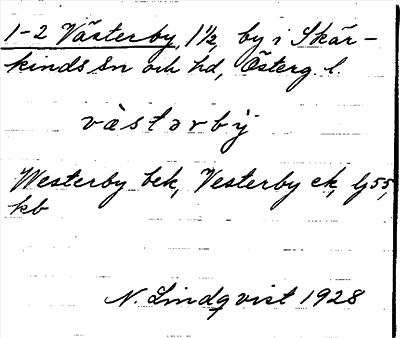 1-2 Västerby, 1 1/2, by i Skär-
kinds sn och hd, Österg. l.
vàstərby̆
Westerby bek, Vesterby ek, G 55,
kb
N. Lindqvist 1928